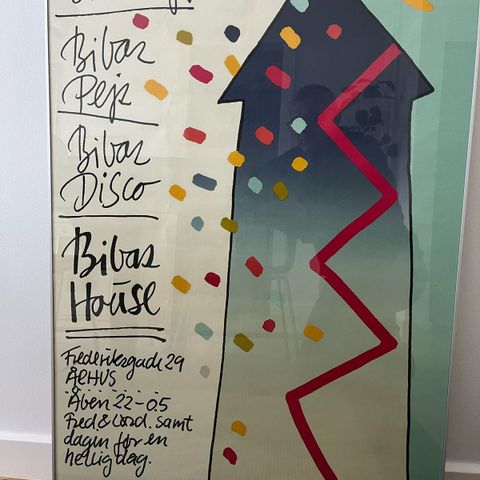 Bibas
Pejs
Bibas
Disco
Bibas
House
Frederiksgade 29
ÅRHUS
Åben 22-05
Fred & Lørd. samt
dagen før en
hellig dag.